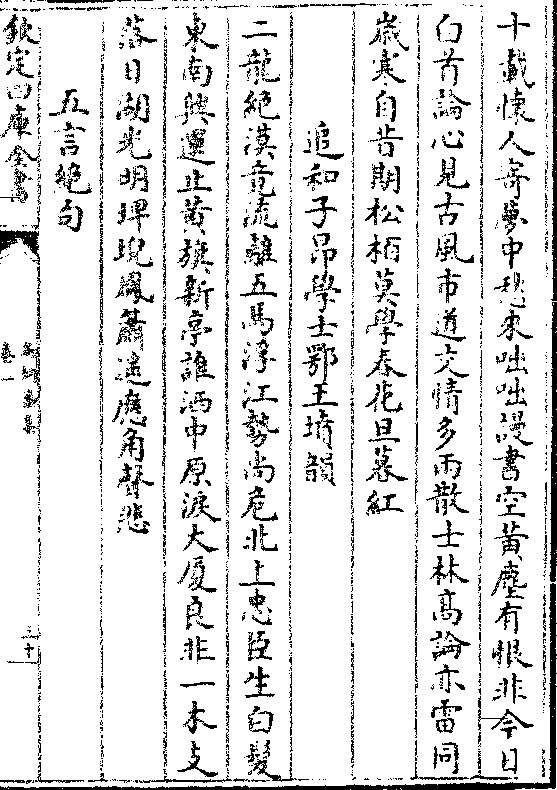 十載懷人寄夢中愁來咄咄謾書空黄塵有恨非今日
白首論心見古風市道交情多雨散士林髙論亦雷同
歲寒自昔期松栢莫學春花旦暮紅
追和子昂學士鄂王墳韻
二龍絶漠竟流離五馬浮江勢尚危北上忠臣生白髪
東南興運止黄旗新亭誰洒中原淚大厦良非一木支
落日湖光明埤堄鳳簫遥應角聲悲
五言絶句
欽定四庫全書
卷一
三十